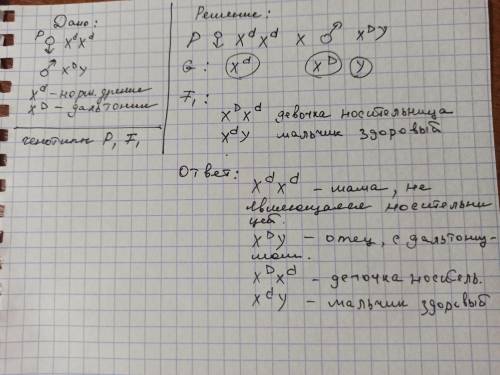 Дано:
P ♀ X^d X^d
♂ X^D Y
X^d - норм. зрение
X^D - дальтоник
генотипы P, F₁
Решение:
P ♀ X^d X^d x ♂ X^D Y
G: X^d X^D Y
F₁:
X^D X^d девочка носительница
X^d Y мальчик здоровый
Ответ:
X^d X^d - мама, не
являющаяся носительни
цей.
X^D Y - отец, с дальтониз-
мом.
X^D X^d - девочка носитель.
X^d Y - мальчик здоровый